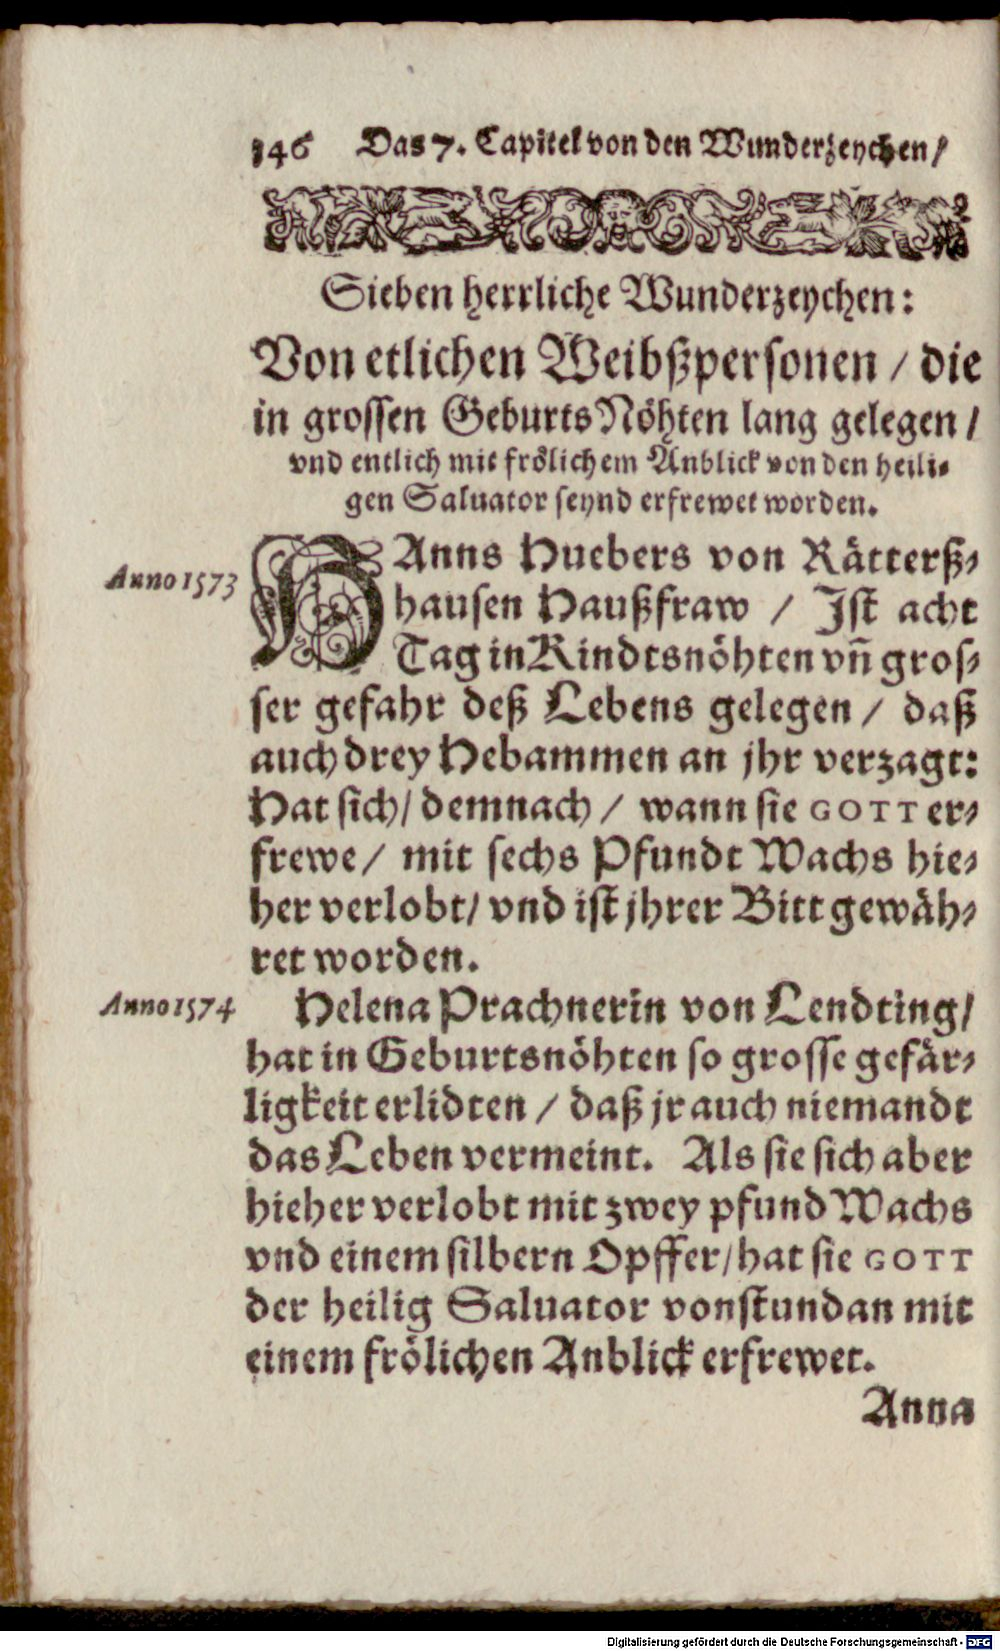 146 Das 7. Capitel von den Wunderzeychen/
Sieben herrliche Wunderzeychen:
Von etlichen Weibßpersonen / die
in grossen GeburtsNöhten lang gelegen /
vnd entlich mit frölichem Anblick von den heili-
gen Saluator seynd erfrewet worden.
Anno 1573
HAnns Huebers von Rätterß-
hausen Haußfraw / Jst acht
Tag in Kindtsnöhten vñ gros-
ser gefahr deß Lebens gelegen / daß
auch drey Hebammen an jhr verzagt:
Hat sich/ demnach / wann sie GOTT er-
frewe / mit sechs Pfundt Wachs hie-
her verlobt/ vnd ist jhrer Bitt gewäh-
ret worden.
Anno 1574
Helena Prachnerin von Lendting/
hat in Geburtsnöhten so grosse gefär-
ligkeit erlidten / daß jr auch niemandt
das Leben vermeint. Als sie sich aber
hieher verlobt mit zwey pfund Wachs
vnd einem silbern Opffer/ hat sie GOTT
der heilig Saluator vonstundan mit
einem frölichen Anblick erfrewet.
Anna
Digitalisierung gefördert durch die Deutsche Forschungsgemeinschaft - DFG